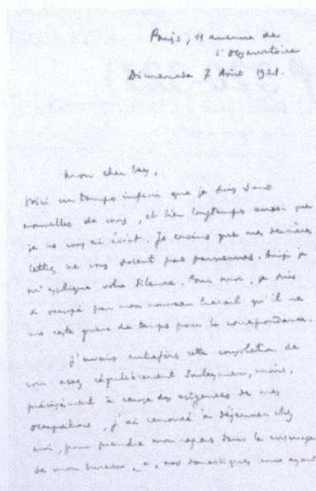 Paris, 11 avenue de
l'Observatoire
Dimanche 7 Août 1921.
Mon cher
Voici un temps infini que je suis sans
nouvelles de vous, et bien longtemps aussi que
je ne vous ai écrit. Je crains que mes dernières
lettres ne vous soient pas parvenues. Ainsi je
m'explique votre silence. Pour moi, je suis
si occupé par mon nouveau travail qu'il ne
me reste guère de temps pour la correspondance.
J'avais autrefois cette consolation de
voir assez régulièrement Souleyman, mais,
précisément à cause des exigences de mes
occupations, j'ai renoncé à déjeuner chez
moi, pour prendre mon repas dans le voisinage
de mon bureau, nos domestiques nous ayant